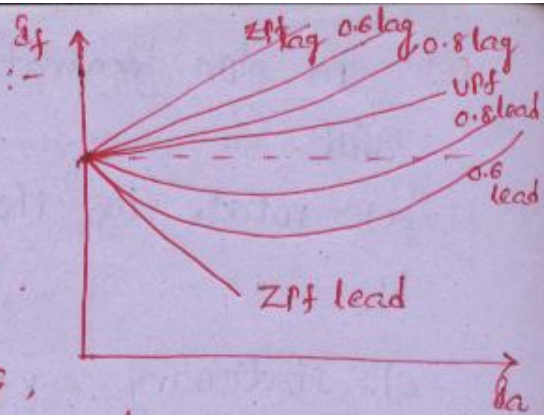 If
:-
ZPf lag
0.6 lag
0.8 lag
UPf
0.8 lead
0.6 lead
ZPf lead
Ia